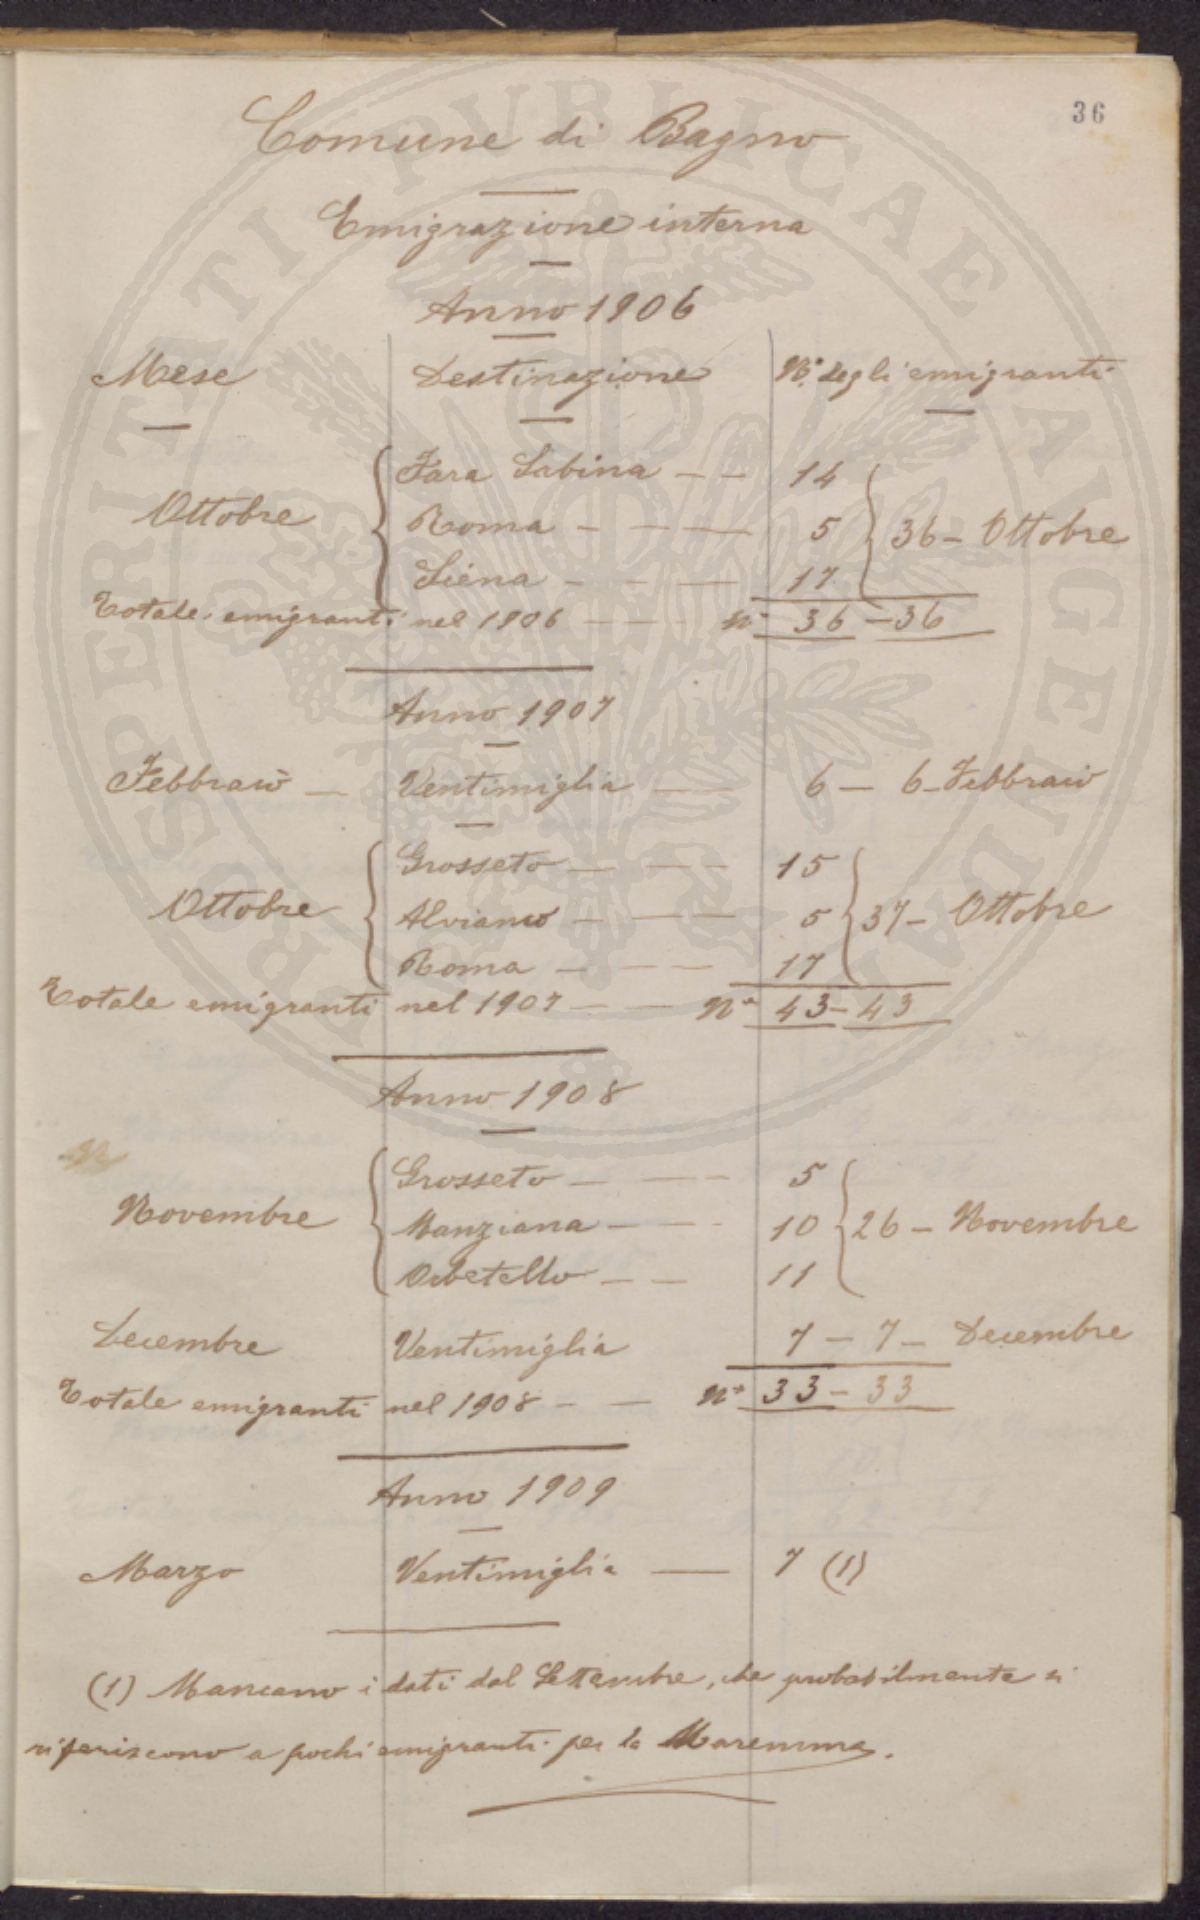 36
Comune di Bagno
Emigrazione interna
Anno 1906
Mese Destinazione N.° degli emigranti
Ottobre { Fara Sabina — — 14
Roma — — — 5 } 36 — Ottobre
Siena — — — 17
Totale emigranti nel 1906 — — — N° 36 — 36
Anno 1907
Febbraio — Ventimiglia — — 6 — 6 — Febbraio
Ottobre { Grosseto — — — 15
Alviano — — — 5 } 37 — Ottobre
Roma — — — 17
Totale emigranti nel 1907 — — N° 43 — 43
Anno 1908
Novembre { Grosseto — — — 5
Manziana — — — 10 } 26 — Novembre
Orbetello — — 11
Decembre Ventimiglia 7 — 7 — Decembre
Totale emigranti nel 1908 — — N° 33 — 33
Anno 1909
Marzo Ventimiglia — 7 (1)
(1) Mancano i dati dal Settembre, che probabilmente si
riferiscono a pochi emigranti per la Maremma.
PROSPERITATI PVBLICAE AVGENDAE